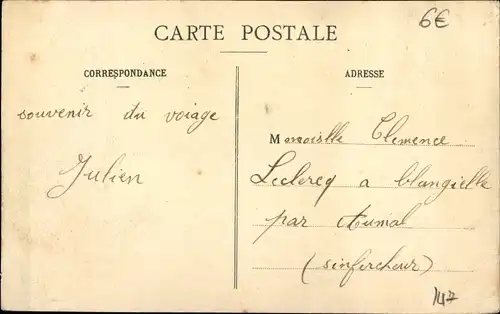 6€
CARTE POSTALE
CORRESPONDANCE
ADRESSE
souvenir du voiage
Julien
Memoiselle Clemence
Leclercq a blangielle
par Aumal
(sinfercheur)
147